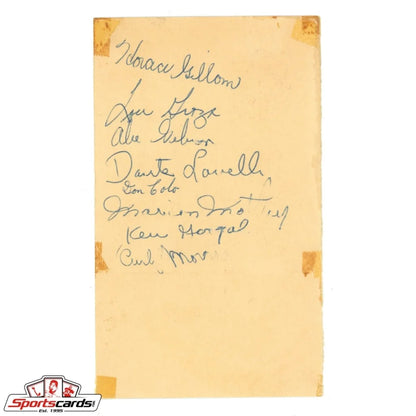 Horace Gillom
Lou Groza
Abe Gibron
Dante Lavelli
Don Colo
Marion Motley
Ken Gorgal
Curly Morr
Sportscards.com
Est. 1995